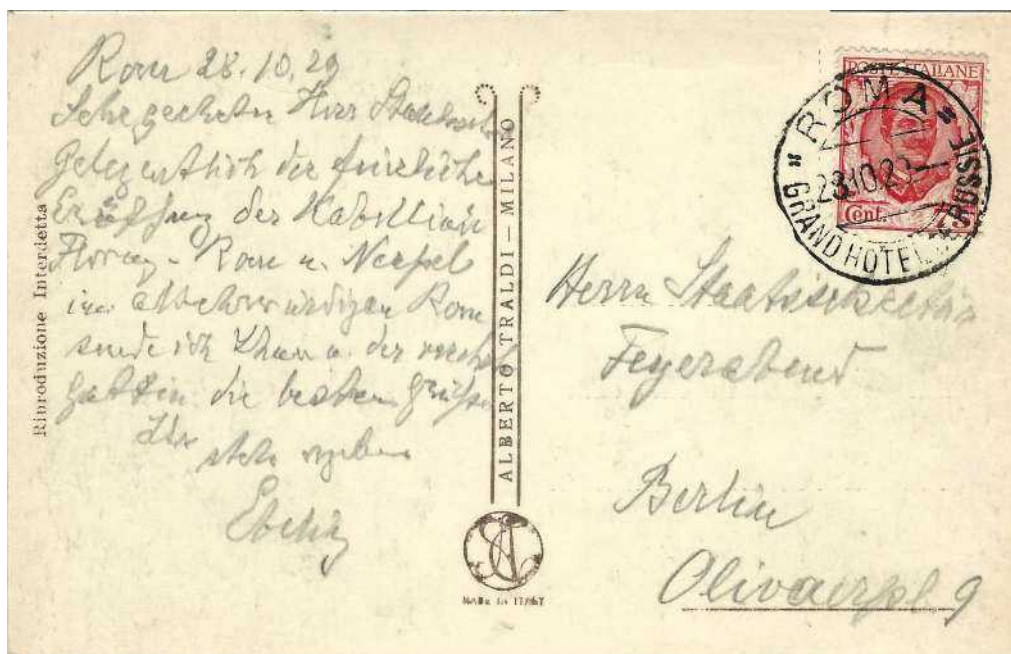 Rom 28.10.29
Sehr geehrter Herr
Gelegentlich der feierlichen
Eröffnung der Kabellinie
Florenz - Rom u. Neapel
im altehrwürdigen Rom
sende ich Ihnen u. der verehrt.
Gattin die besten Grüße
Ihr
stets ergebener
Riproduzione Interdetta
ALBERTO TRALDI - MILANO
MADE IN ITALY
POSTE ITALIANE
Cent.
"ROMA"
28.10.29
GRAND HOTEL DE RUSSIE
Herrn Staatssekretär
Feyerabend
Berlin
Olivaerpl. 9